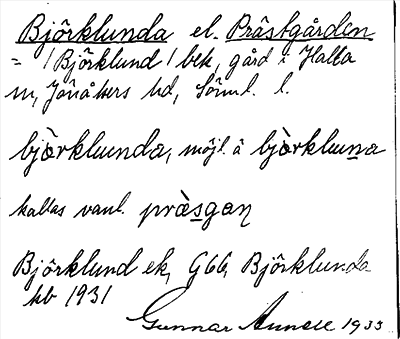 Björklunda el. Prästgården
= /Björklund/ bek, gård i Halla
sn, Jönåkers hd, Söml. l.
björklunda, möjl. å björkluna
kallas vanl. präsgaŋ
Björklund ek, G66, Björklunda
hb 1931
Gunnar 1933